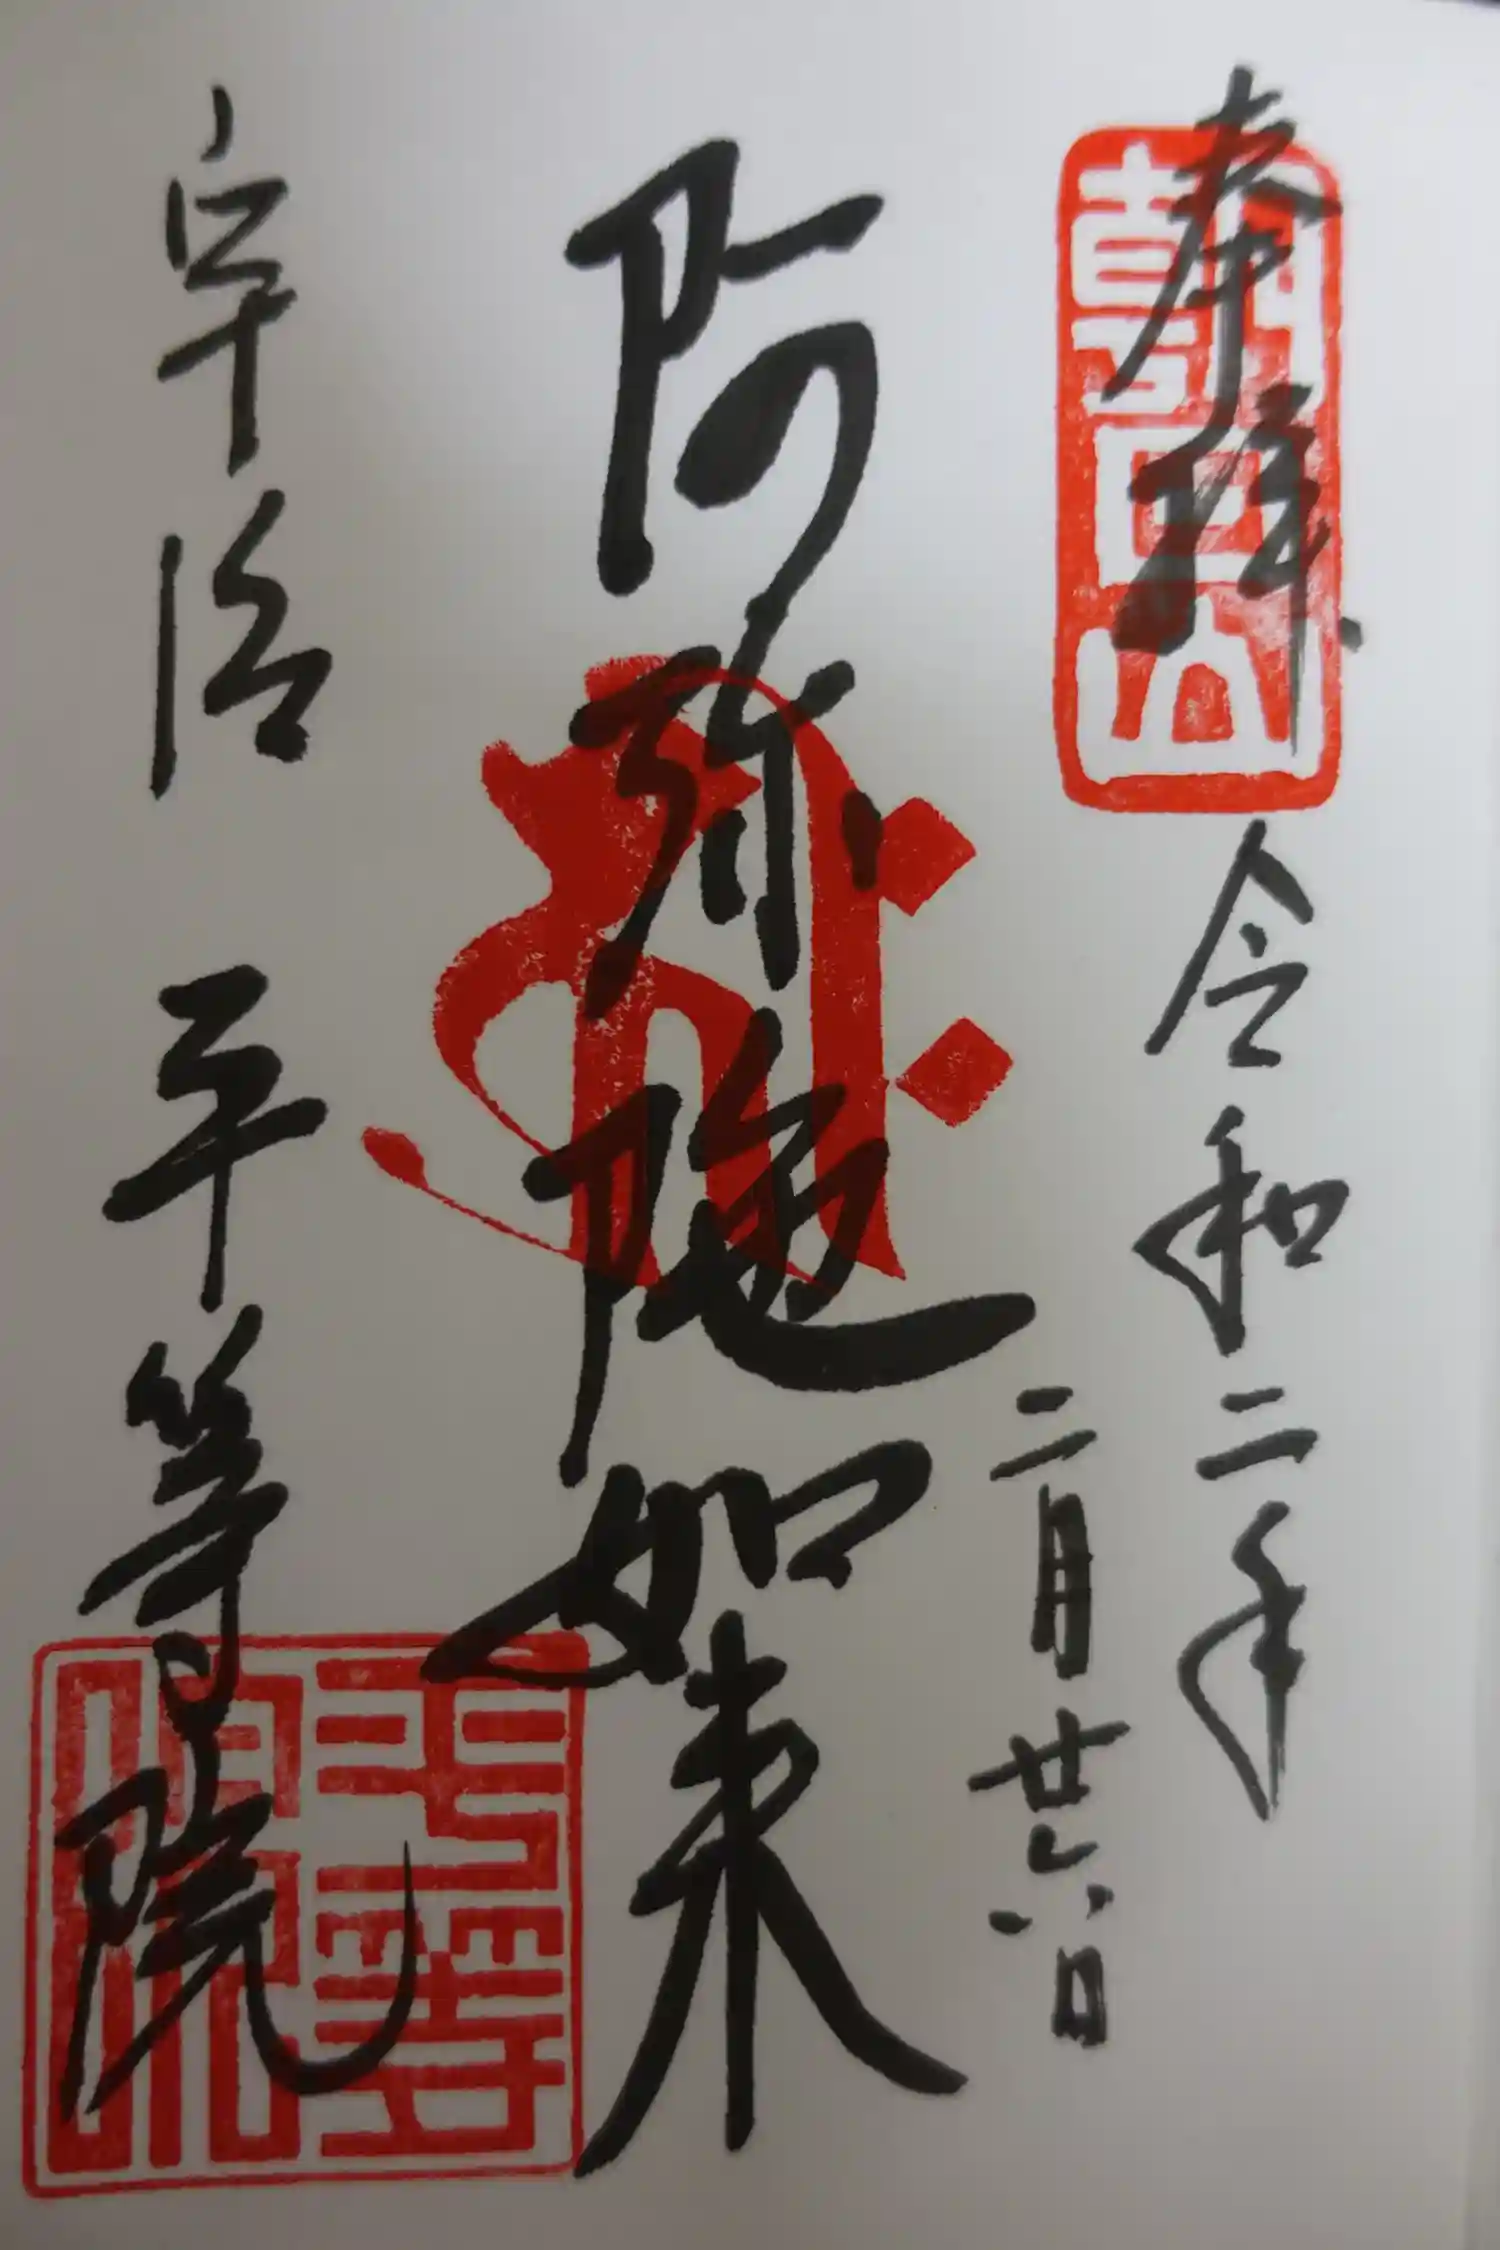 奉拝
令和二年
二月廿六日
阿弥陀如来
宇治
平等院
朝日山
平等院印